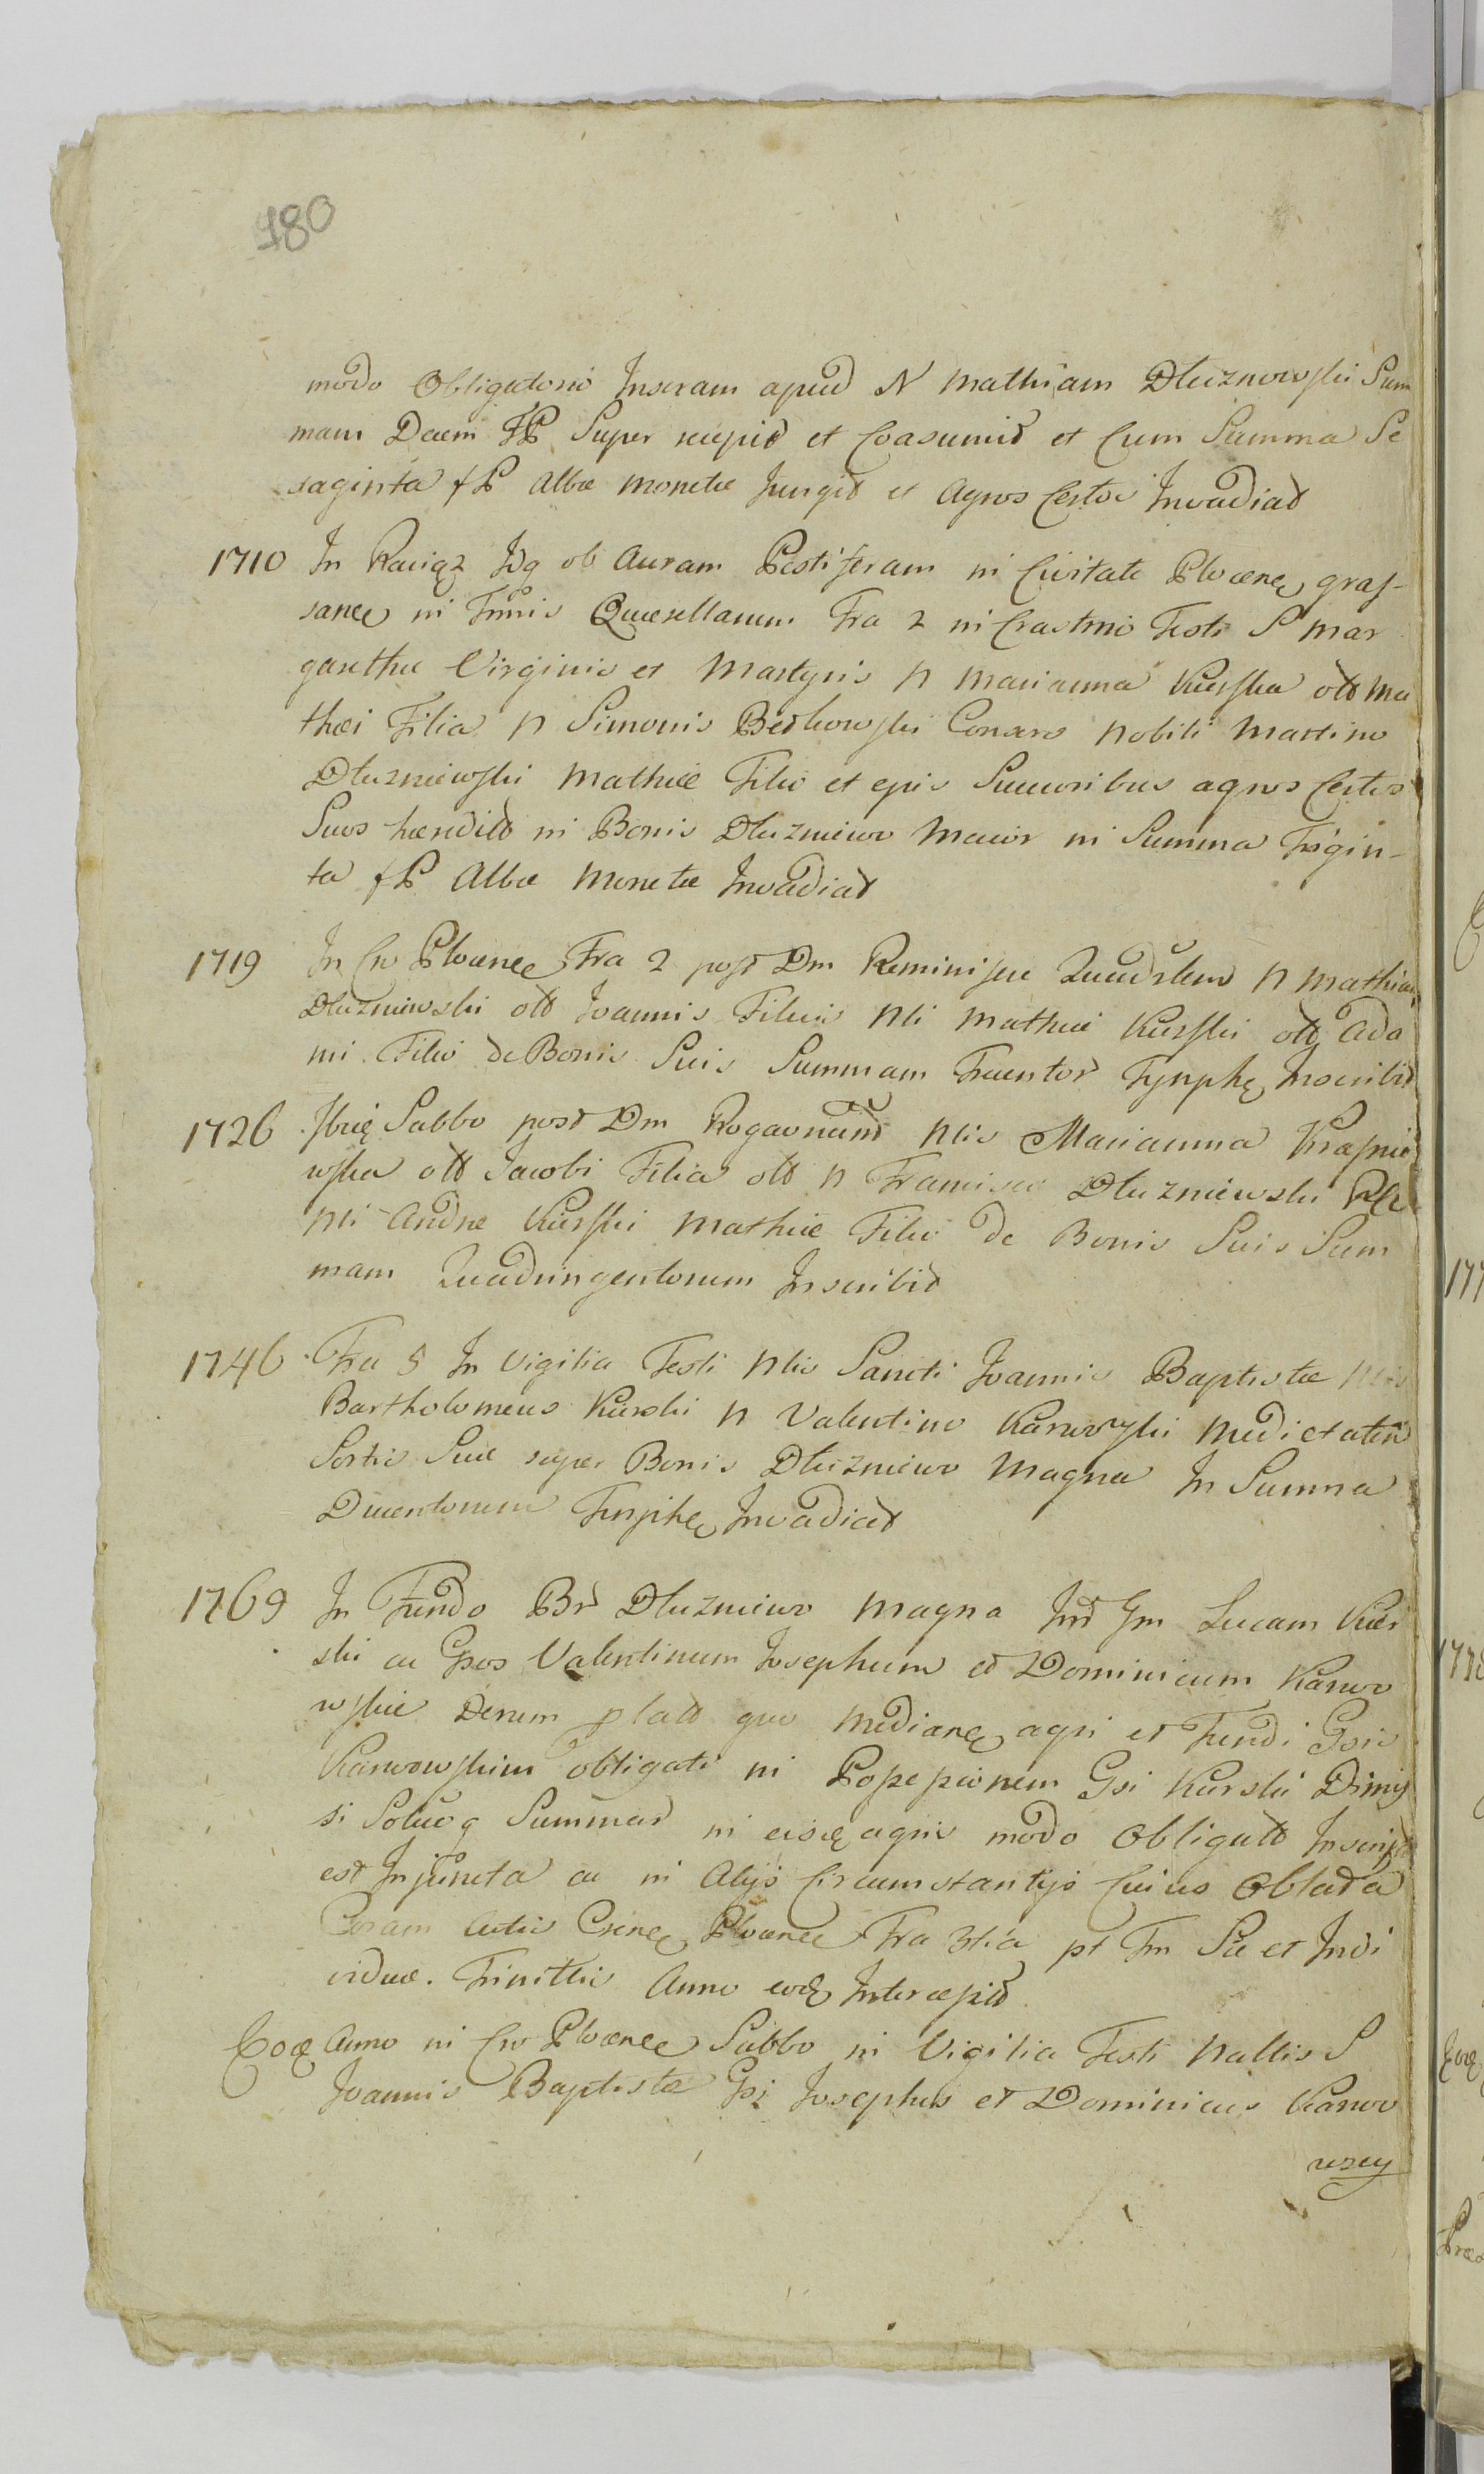 180
modo Obligatorio Inscram apud N Mathiam Dłuznowski Sum
mam Decem FP Super recepit et Coasumit et Cum Summa Se
xaginta fP Albæ monetæ Jungit et Agros Certos Invadiat
1710 In Raciąz Idq ob Auram Pestiferam in Civitate Plocene gras-
sane in Tmis Querellarum Fra 2 in Crastino Festi S Mar
garethæ Virginis et Martyris N Marianna Kurska olt Ma
thæi Filia N Simonis Bedkowski Consors Nobili Martino
Dłuzniewski Mathiæ Filio et ejus Succoribus agros Certos
Suos hændit in Bonis Dłuzniewo Maior in Summa Trigin-
ta fP Albæ Monetæ Invadiat
1719 In Cro Plocene Fra 2 post Dm Reminiscere N Mathias
Dłuzniewski olt Joannis Filius Nli Mathiæ Kurski olt Ada
mi Filio de Bonis Suis Summam Trecentor Tynphe Inscribit
1726 Ibię Sabbo post Dm Rogaonum Nlis Marianna Krasnie
wska olt Jacobi Filia olt N Francisci Dłuzniewski Rlta
Nli Andræ Kurski Mathiæ Filio de Bonis Suis Sum
mam Quadringentorum Inscribit
1746 Fra 5 In Vigilia Festi Ntis Sancti Joannis Baptistæ Nlis
Bartholomeus Kurski N Valentino Karwowski Medietatem
Sortis Suæ super Bonis Dłuzniewo Magna In Summa
Ducentorum Tinphe Invadiat
1769 In Fundo Br Dłuzniewo Magna Int Gm Lucam Kur
ski ac Gsos Valentinum Josephum et Dominicum Karwo
wskie Denem platt quo Mediane agri et Fundi Gsis
Karwowskim obligati in Possessionem Gsi Kurski Dimis
si Solucoq Summar in eisdę agris modo Obligatt Inscript
est Injuncta ac in Alijs Circumstantijs Cuius Oblata
Coram Actis Plocene Fra 3tia pt Fm Sæ et Indi
viduæ. Trinittis Anno eodę Intercepit
Eodę Anno in Cro Plocene Sabbo in Vigilia Festi Nattis S
Joannis Baptistæ Gsi Josephus et Dominicus Karwo
wscy